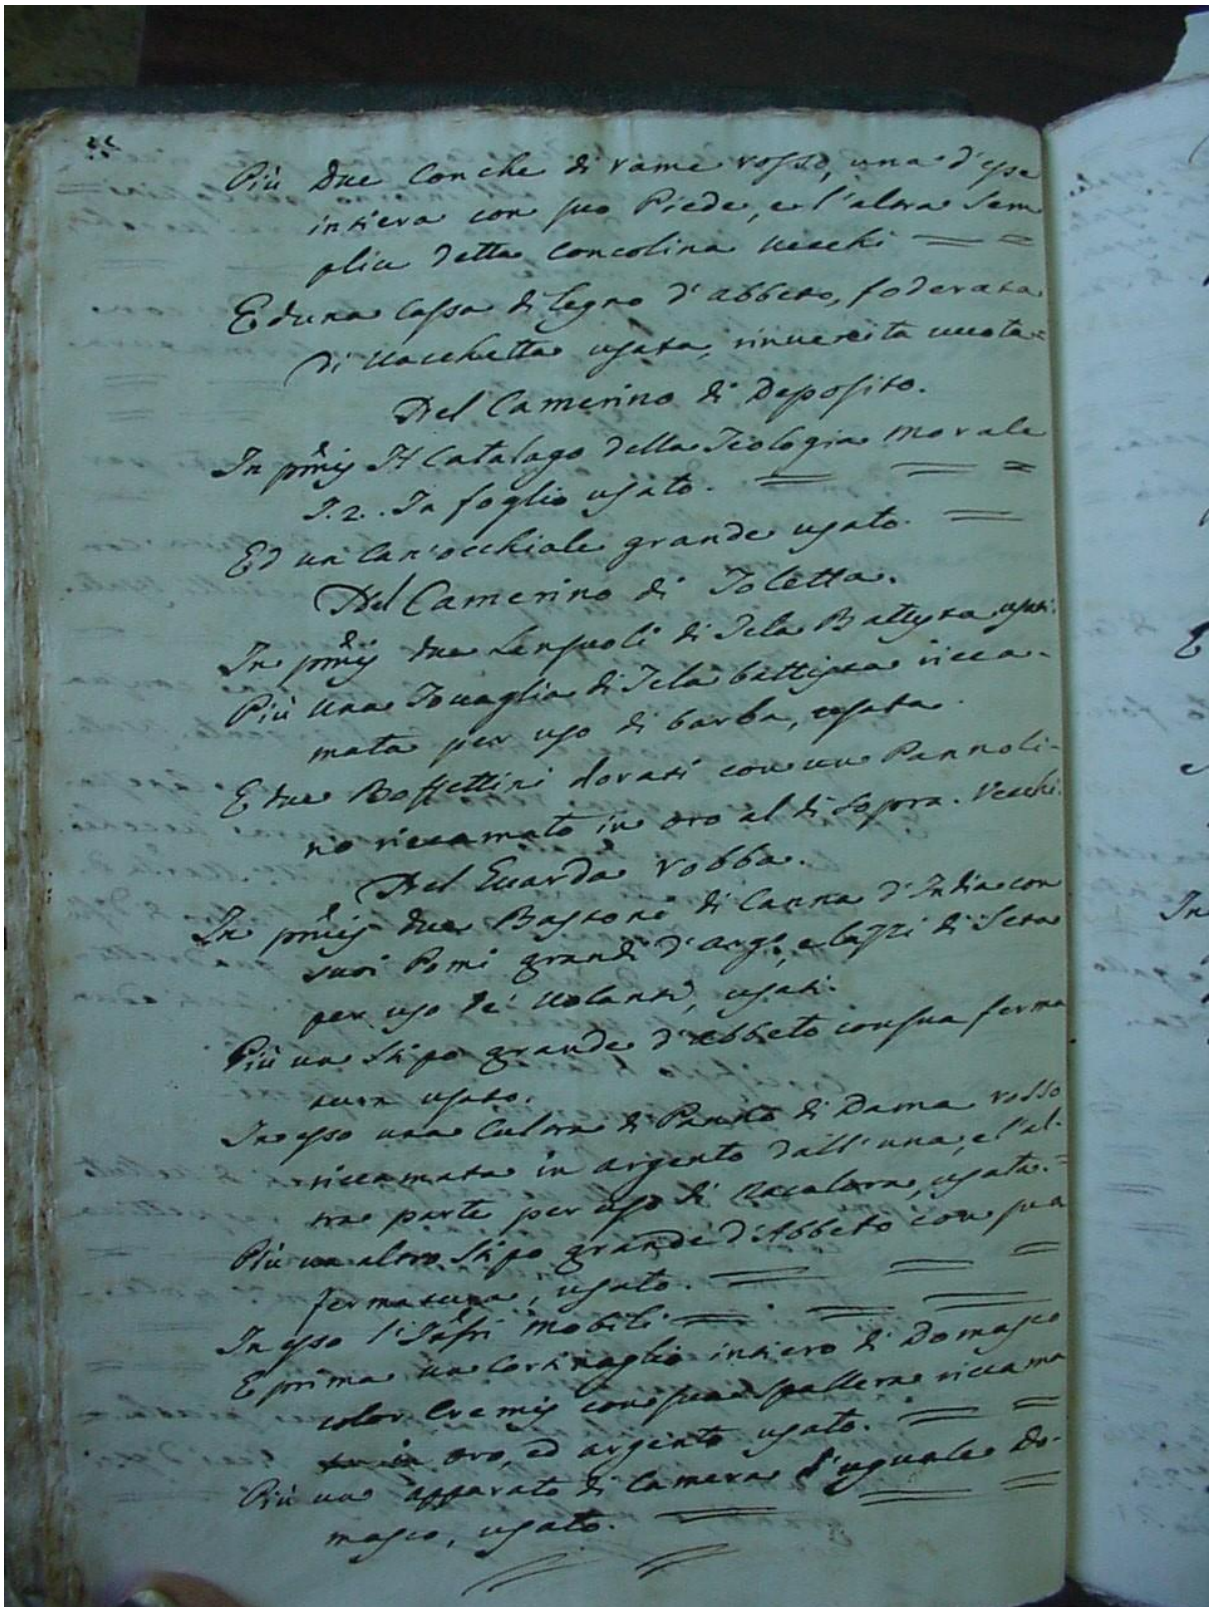 Più due Conche di rame rosso, una d'esse
intiera con suo Piede, e l'altra Sem
plice detta Concolina vecchi
Ed una Cassa di legno d'abbeto, foderata
di Vacchetta usata, rinvenita vuota
Nel Camerino di Deposito.
In prīs Il Catalago della Teologia Morale
T. 2. In foglio usato.
Ed un Can'occhiale grande usato.
Nel Camerino di Toletta.
In prīs due Lensuoli di Tela Battista usati.
Più una Tovaglia di Tela battista ricca-
mata per uso di barba, usata.
E due Boffettini dorati con un Pannoli-
no riccamato in oro al di sopra. Vecchi.
Nel Guarda robba.
In prīs due Bastone di Canna d'India con
suoi Pomi grandi d'arg.o, e lazzi di Seta
per uso de' Volanti, usati.
Più un Stipo grande d'abbeto con sua ferma
tura usato.
In esso una di Panno di Dama rosso
riccamata in argento dall'una, e l'al-
tra parte per uso di usata.
Più un altro Stipo grande d'Abbeto con sua
fermatura, usato.
In esso l'Infri Mobili
E prima un Cortinaglio intiero di Domasco
color Cremis con sua spallera riccama
ta in oro, ed argento usato.
Più un apparato di Camera d'uguale Do-
masco, usato.